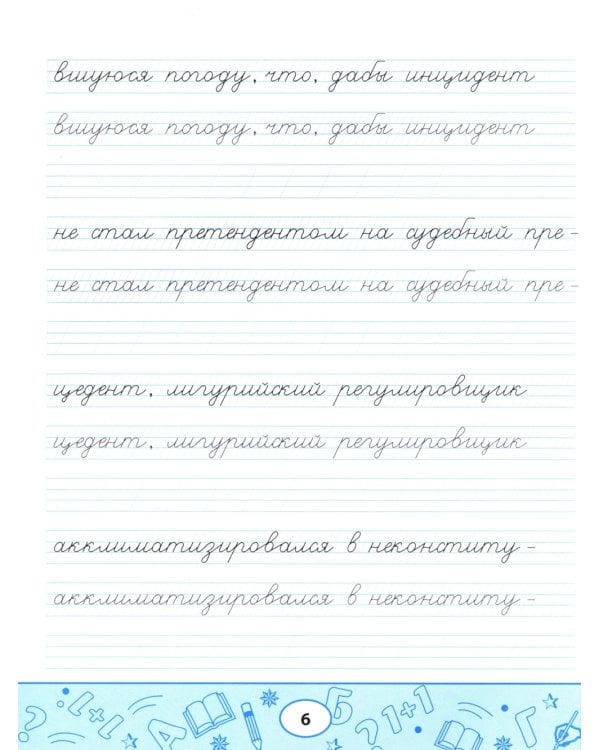 вшуюся погоду, что, дабы инцидент
вшуюся погоду, что, дабы инцидент
не стал претендентом на судебный пре-
не стал претендентом на судебный пре-
цедент, лигурийский регулировщик
цедент, лигурийский регулировщик
акклиматизировался в неконститу-
акклиматизировался в неконститу-
? 1+1 А 6 Б ? 1+1 Г